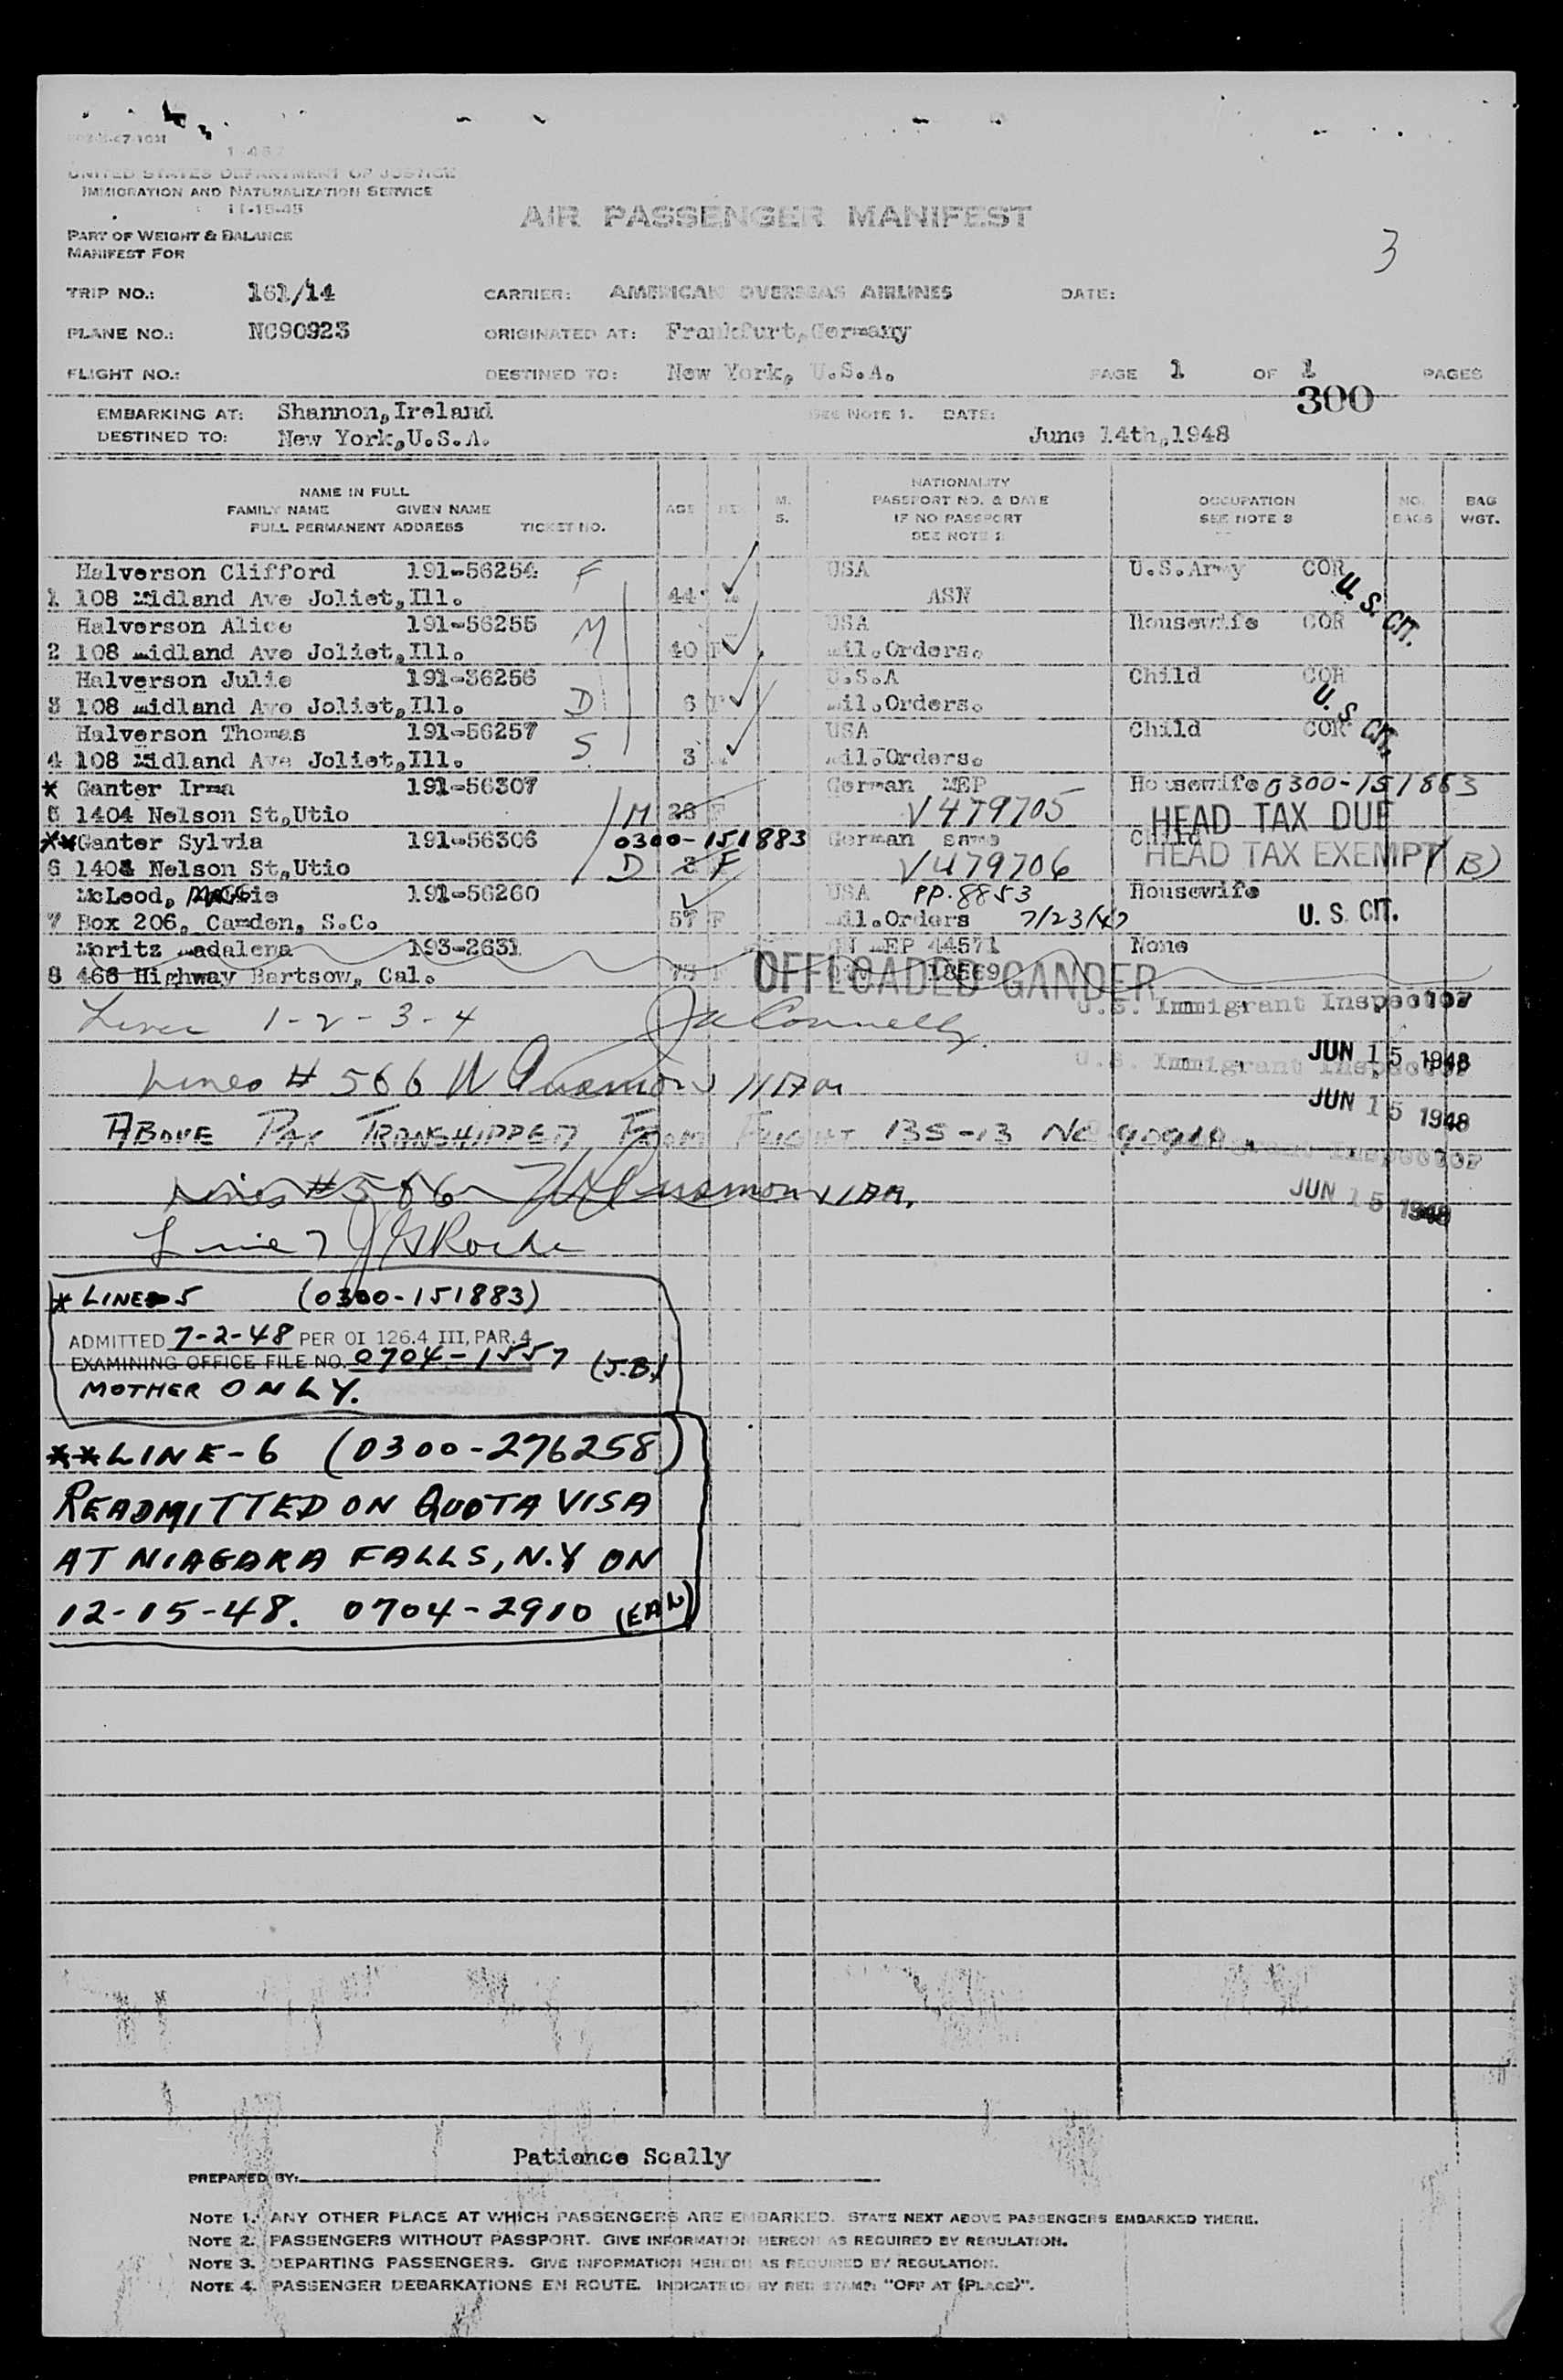 UNITED STATES DEPARTMENT OF JUSTICE
IMMIGRATION AND NATURALIZATION SERVICE
11-15-45
AIR PASSENGER MANIFEST
PART OF WEIGHT & BALANCE
MANIFEST FOR
3
TRIP NO.: 161/14 CARRIER: AMERICAN OVERSEAS AIRLINES DATE:
PLANE NO.: NC90923 ORIGINATED AT: Frankfurt,Germany
FLIGHT NO.: DESTINED TO: New York, U.S.A. PAGE 1 OF 1 PAGES
300
EMBARKING AT: Shannon,Ireland SEE NOTE 1. DATE:
DESTINED TO: New York,U.S.A. June 14th,1948
NAME IN FULL
FAMILY NAME GIVEN NAME
FULL PERMANENT ADDRESS TICKET NO.
AGE SEX M. S.
NATIONALITY
PASSPORT NO. & DATE
IF NO PASSPORT
SEE NOTE 2
OCCUPATION
SEE NOTE 3
NO. BAGS
BAG WGT.
Halverson Clifford 191-56254 F USA U.S.Army COR
1 108 Midland Ave Joliet,Ill. 44 ASN U. S. CIT.
Halverson Alice 191-56255 M USA Housewife COR
2 108 Midland Ave Joliet,Ill. 40 F Mil.Orders.
Halverson Julie 191-56256 U.S.A Child COR
3 108 Midland Ave Joliet,Ill. D 6 F Mil.Orders. U. S. CIT.
Halverson Thomas 191-56257 USA Child COR
4 108 Midland Ave Joliet,Ill. S 3 Mil.Orders.
* Ganter Irma 191-56307 German MEP Housewife 0300-151883
5 1404 Nelson St,Utio M 28 F V479705 HEAD TAX DUE
**Ganter Sylvia 191-56306 0300-151883 German same Child
6 1404 Nelson St,Utio D F V479706 HEAD TAX EXEMPT (B)
McLeod, 191-56260 USA PP.8853 Housewife
7 Box 206, Camden, S.C. 57 F Mil.Orders 7/23/47 U. S. CIT.
Moritz Madalena 193-2631 MEP 44571 None
8 466 Highway Bartsow, Cal. 18569
OFFLOADED GANDER
Lines 1-2-3-4 JA Connelly U.S. Immigrant Inspector
JUN 15 1948
U.S. Immigrant Inspector
Lines # 5 6 6
JUN 15 1948
ABOVE PAX TRANSHIPPED FROM FLIGHT 135-13 NC 90910.
Immigrant Inspector
Lines # 5 & 6
JUN 15 1948
Line 7 JG Roche
* LINE 5 (0300-151883)
ADMITTED 7-2-48 PER OI 126.4 III, PAR. 4
EXAMINING OFFICE FILE NO. 0704-1557 (J.B.)
MOTHER ONLY.
**LINE-6 (0300-276258)
READMITTED ON QUOTA VISA
AT NIAGARA FALLS, N.Y ON
12-15-48. 0704-2910 (EAW)
Patience Scally
PREPARED BY:
NOTE 1. ANY OTHER PLACE AT WHICH PASSENGERS ARE EMBARKED. STATE NEXT ABOVE PASSENGERS EMBARKED THERE.
NOTE 2. PASSENGERS WITHOUT PASSPORT. GIVE INFORMATION HEREON AS REQUIRED BY REGULATION.
NOTE 3. DEPARTING PASSENGERS. GIVE INFORMATION HEREON AS REQUIRED BY REGULATION.
NOTE 4. PASSENGER DEBARKATIONS EN ROUTE. INDICATED BY RED STAMP: "OFF AT (PLACE)".